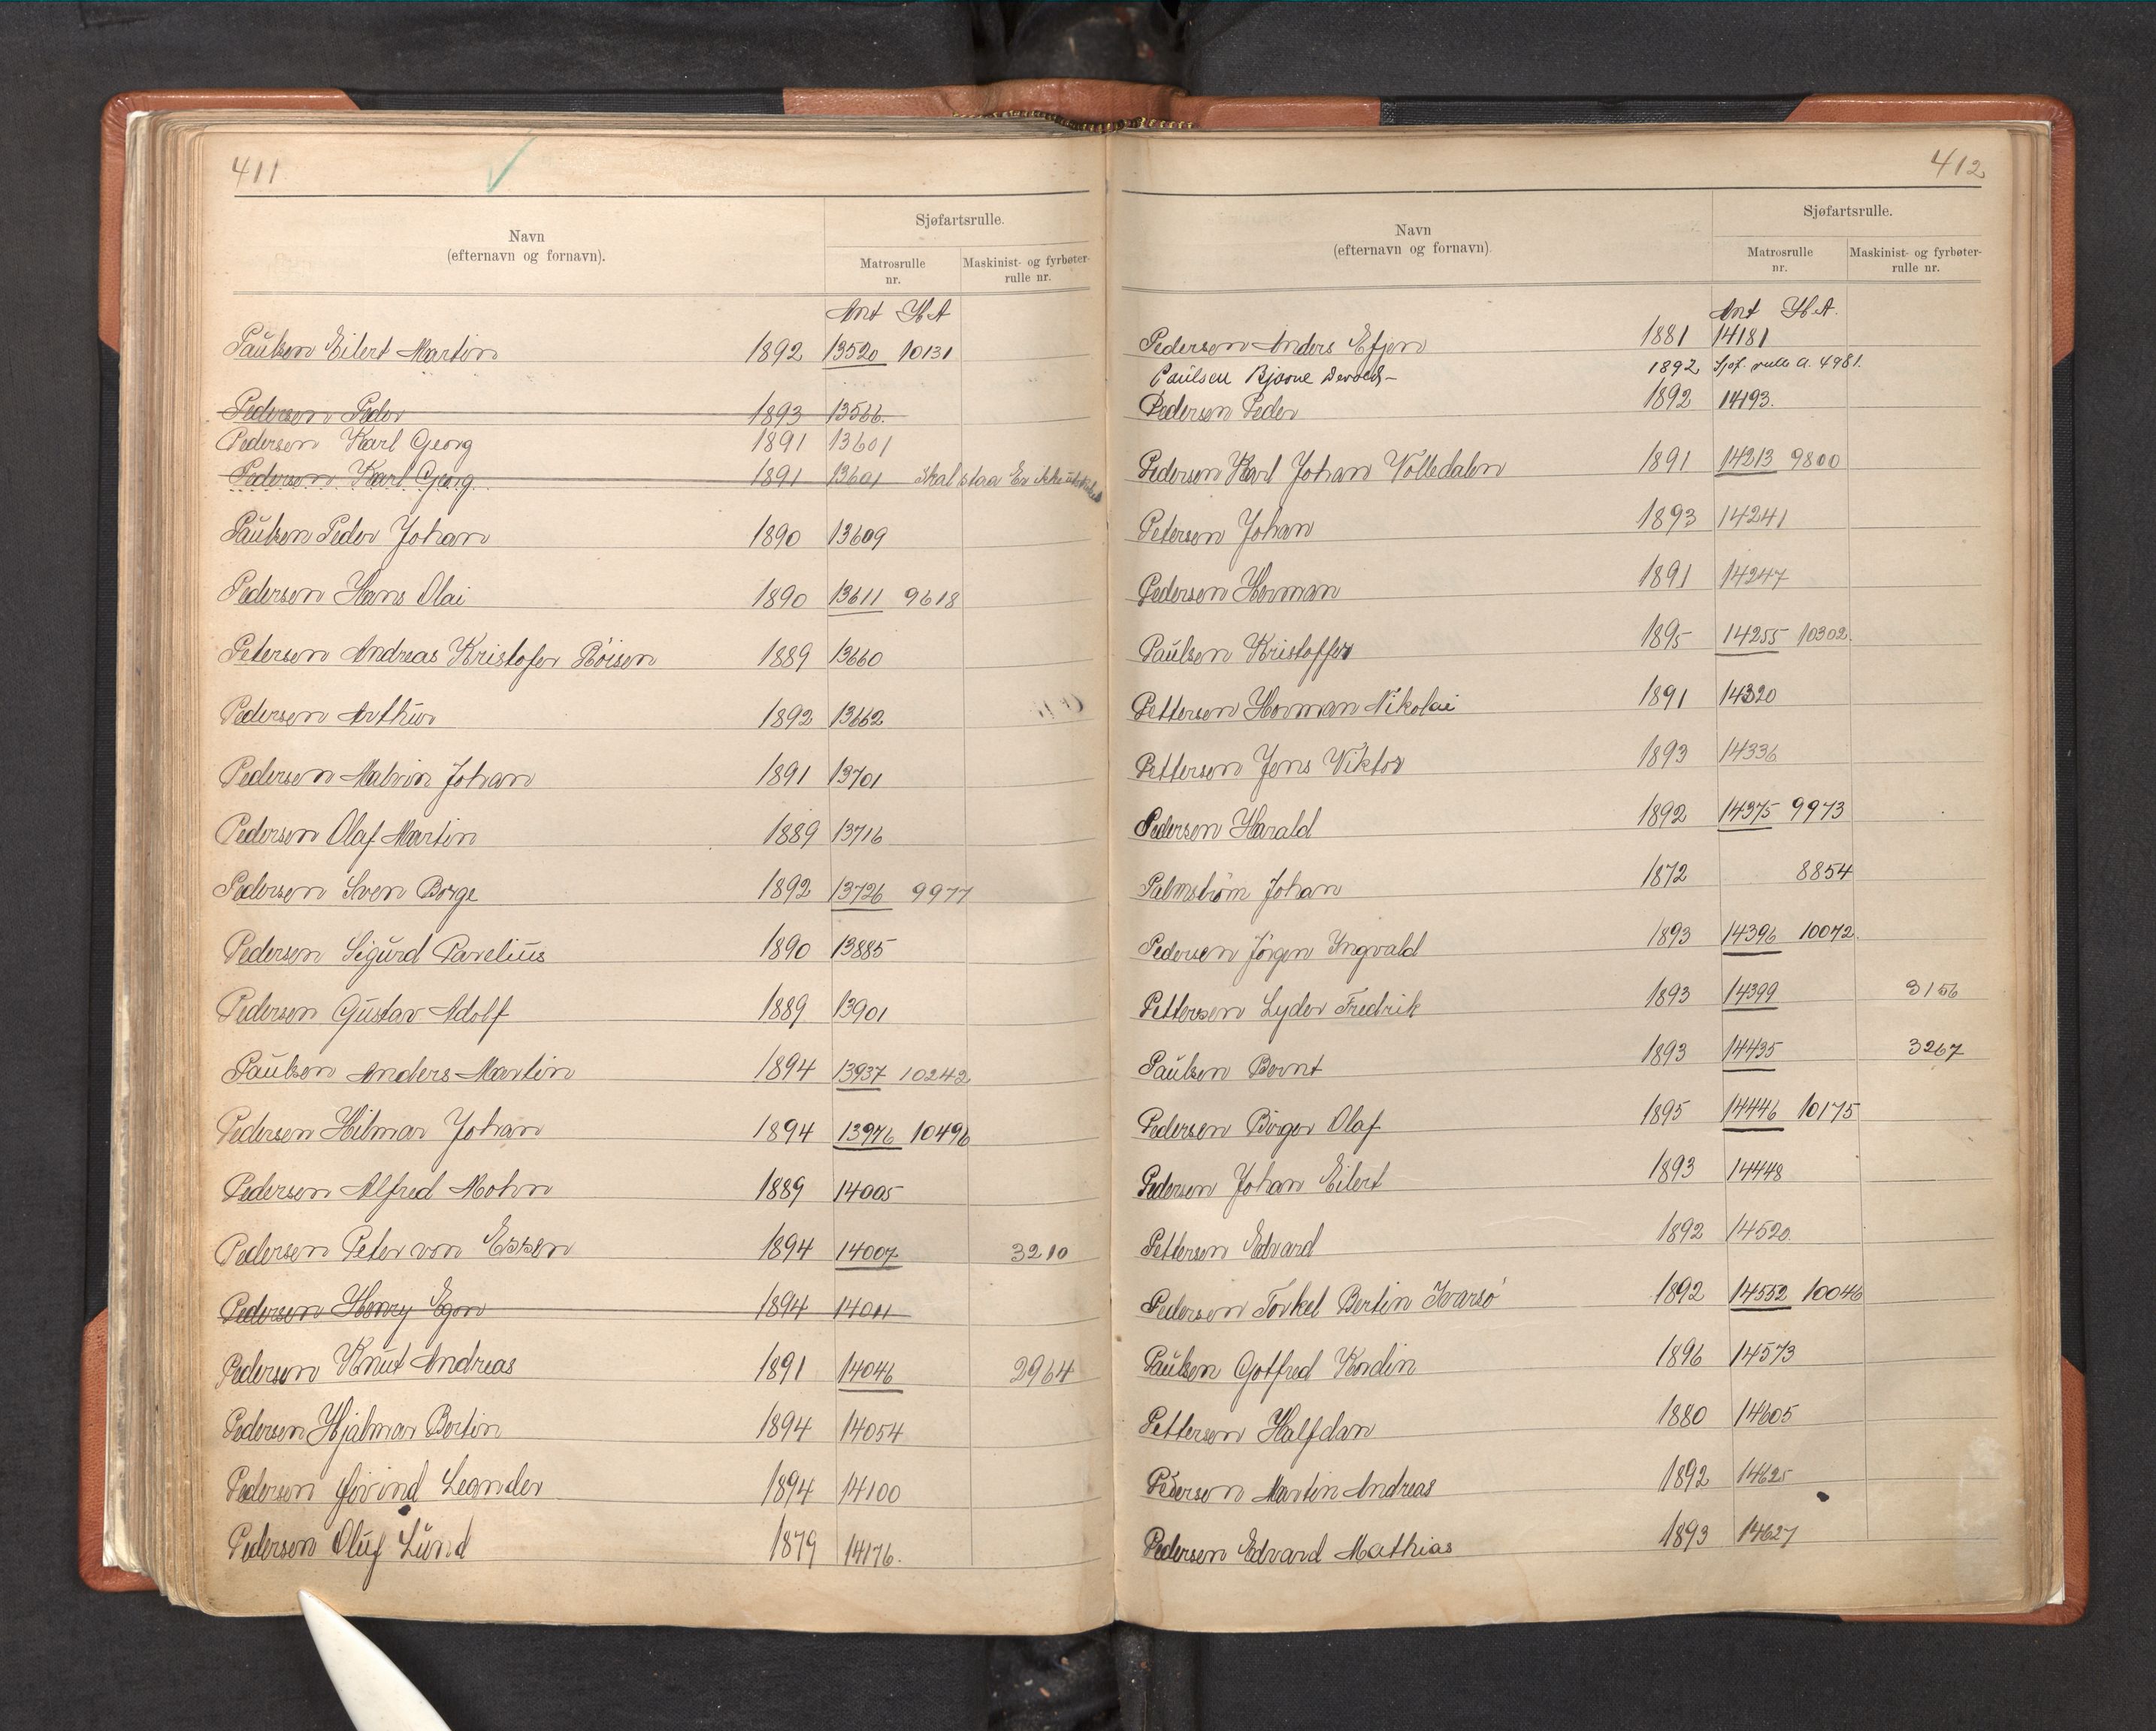 411
Navn
(efternavn og fornavn).
Sjøfartsrulle.
Matrosrulle
nr.
Maskinist- og fyrbøter-
rulle nr.
Ant H A
Paulsen Eilert Martin 1892 13520 10131
Pedersen Peder 1893 13566.
Pedersen Karl Georg 1891 13601
Pedersen Karl Georg 1891 13601 skal staa Er ikke
Paulsen Peder Johan 1890 13609
Pedersen Hans Olai 1890 13611 9618
Petersen Andreas Kristofer Böisen 1889 13660
Pedersen Arthur 1892 13662
Pedersen Malvin Johan 1891 13701
Pedersen Olaf Martin 1889 13716
Pedersen Sven Borge 1892 13726 9977
Pedersen Sigurd Parelius 1890 13885
Pedersen Gustav Adolf 1889 13901
Paulsen Anders Martin 1894 13937 10242
Pedersen Hilmar Johan 1894 13976 10496
Pedersen Alfred Mohn 1889 14005
Pedersen Peter von Essen 1894 14007 3210
Pedersen Henry Egon 1894 14011
Pedersen Knut Andreas 1891 14046 2964
Pedersen Hjalmar Bertin 1894 14054
Pedersen Øivind Leander 1894 14100
Pedersen Oluf Lund 1879 14176.
412
Navn
(efternavn og fornavn).
Sjøfartsrulle.
Matrosrulle
nr.
Maskinist- og fyrbøter-
rulle nr.
Ant H A.
Pedersen Anders Efjen 1881 14181
Paulsen Bjarne Devold 1892 Sjøf. rulle A. 4981.
Pedersen Peder 1892 14193.
Pedersen Karl Johan Volledalen 1891 14213 9800
Petersen Johan 1893 14241
Pedersen Herman 1891 14247
Paulsen Kristoffer 1895 14255 10302.
Pettersen Herman Nikolai 1891 14320
Pettersen Jens Viktor 1893 14336
Pedersen Harald 1892 14375 9973
Palmström Johan 1872 8854
Pedersen Jörgen Yngvald 1893 14396 10072.
Pettersen Lyder Fredrik 1893 14399 3156
Paulsen Bernt 1893 14435 3267
Pedersen Birger Olaf 1895 14446 10175
Pedersen Johan Eilert 1893 14448
Pettersen Edvard 1892 14520.
Pedersen Torkel Bertin Ivarsö 1892 14552 10046
Paulsen Gotfred Kondin 1896 14573
Pettersen Halfdan 1880 14605
Pedersen Martin Andreas 1892 14625
Pedersen Edvard Mathias 1893 14627